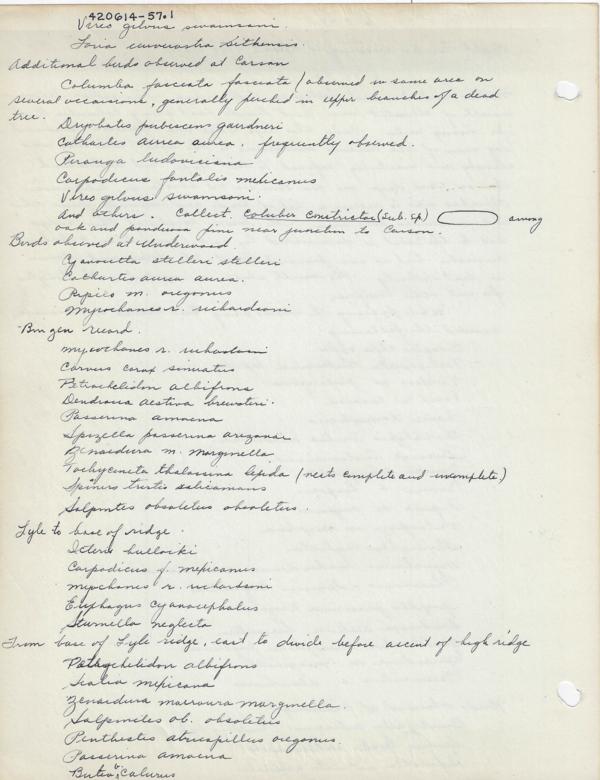 420614-57.1
Vireo gilvus swainsoni.
Loxia curvirostra sitkensis.
Additional birds observed at Carson
Columba fasciata fasciata (observed in same area on
several occasions, generally perched in upper branches of a dead
tree.
Dryobates pubescens gairdneri
Cathartes aurea aurea, frequently observed.
Piranga ludoviciana
Carpodicus fontalis mexicanus
Vireo gilvus swainsoni.
And others. Collect. Coluber constrictor (sub. sp) among
oak and pondurosa pine near junction to Carson.
Birds observed at Underwood.
Cyanocitta stelleri stelleri
Cathartes aurea aurea.
Pipilo m. oregonus
Myiochanes r. richardsoni
Bingen record.
Myiochanes r. richardsoni
Corvus corax sinuatus
Petrochelidon albifrons
Dendroica aestiva brewsteri.
Passerina amoena
Spizella passerina arizonae
Zenaidura m. marginella
Tachycineta thalassina lepida (nests complete and incomplete.)
Spinus tristis salicamans
Salpintes obsoletus obsoletus.
Lyle to base of ridge.
Icterus bullocki
Carpodicus f. mexicanus
Myiochanes r. richardsoni
Euphagus cyanocephalus
Sturnella neglecta
From base of Lyle ridge, east to divide before ascent of high ridge
Petrochelidon albifrons
Sialia mexicana
Zenaidura macroura marginella.
Salpinctes ob. obsoletus
Penthestes atricapillus oregonus.
Passerina amoena
Buteo b. calurus